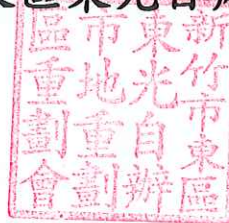 新竹市東區
東光自辦
市地重劃
區重劃會